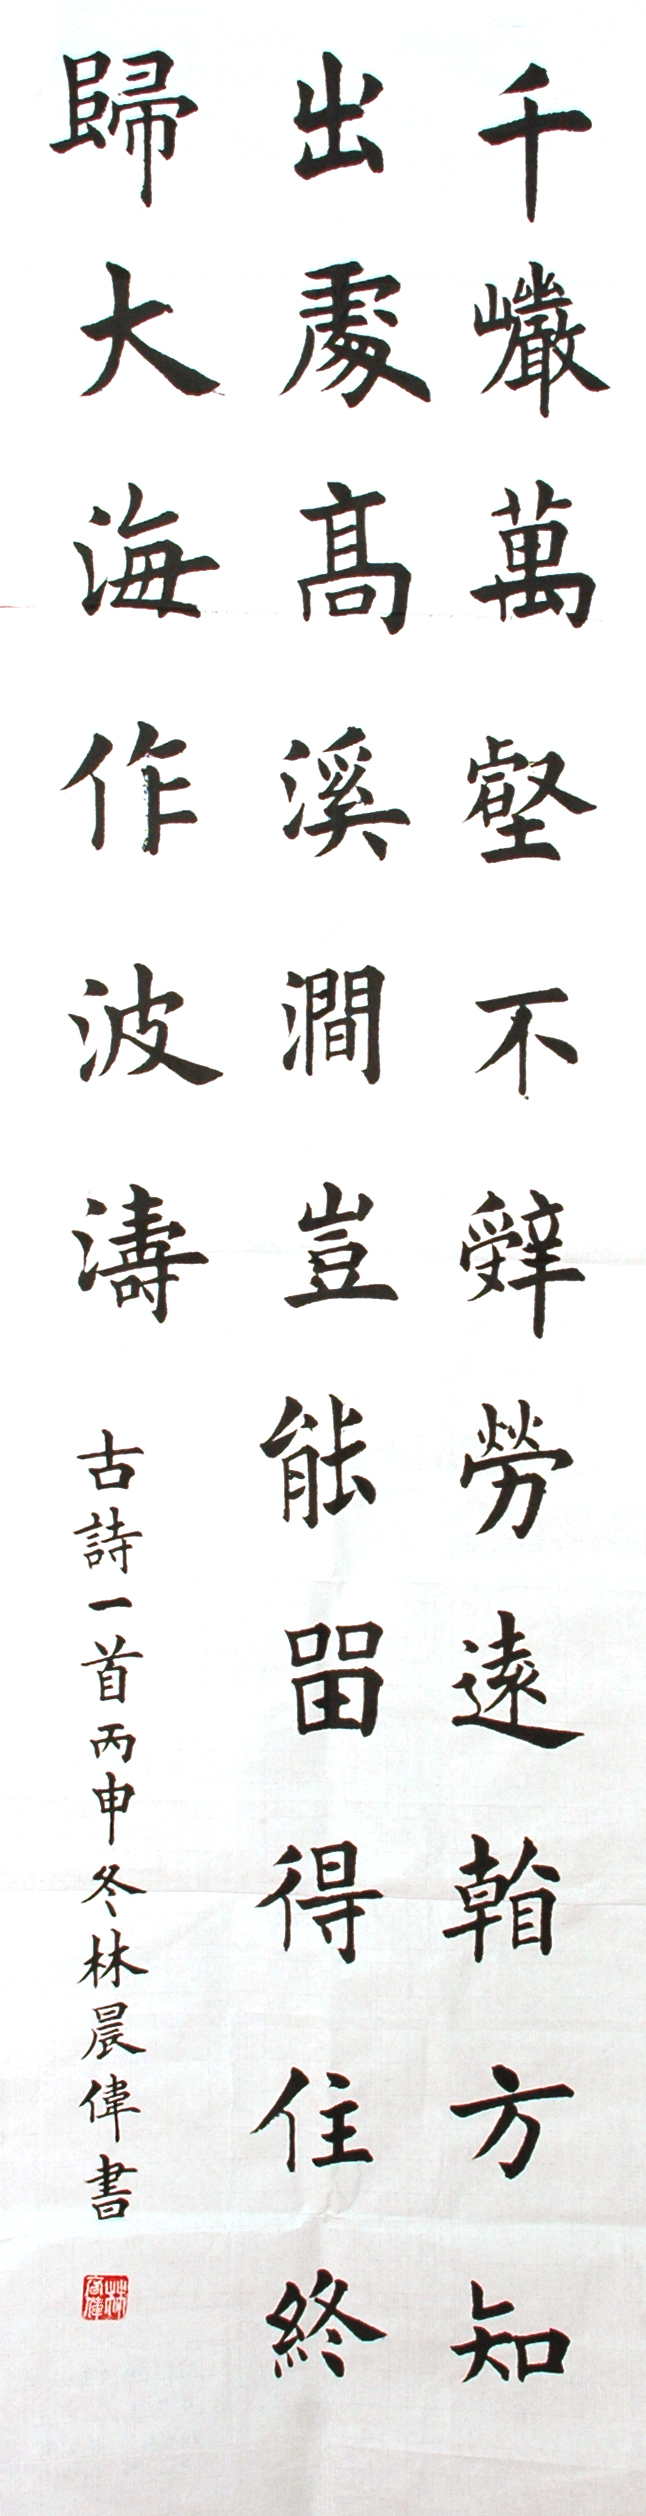 千巗萬壑不辤勞遠䀍方知
出處髙溪澗豈能㽞得住終
歸大海作波濤
古詩一首丙申冬林晨偉書